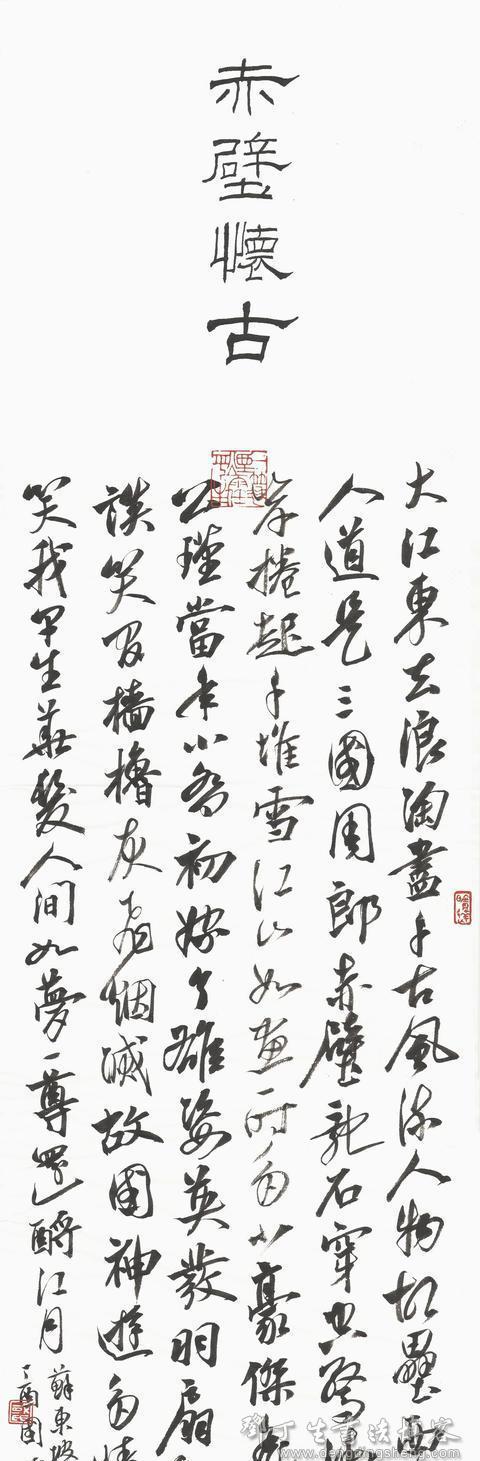 赤壁懷古
大江東去浪淘盡千古風流人物故壘西
人道是三國周郎赤壁亂石穿空驚濤
岸捲起千堆雪江山如畫一時多少豪傑遙
公瑾當年小喬初嫁了雄姿英發羽扇
談笑間檣櫓灰飛煙滅故國神遊多情
笑我早生華髮人間如夢一尊還酹江月
蘇東坡
丁酉
鄧丁生書法博客
dengdingsheng.com